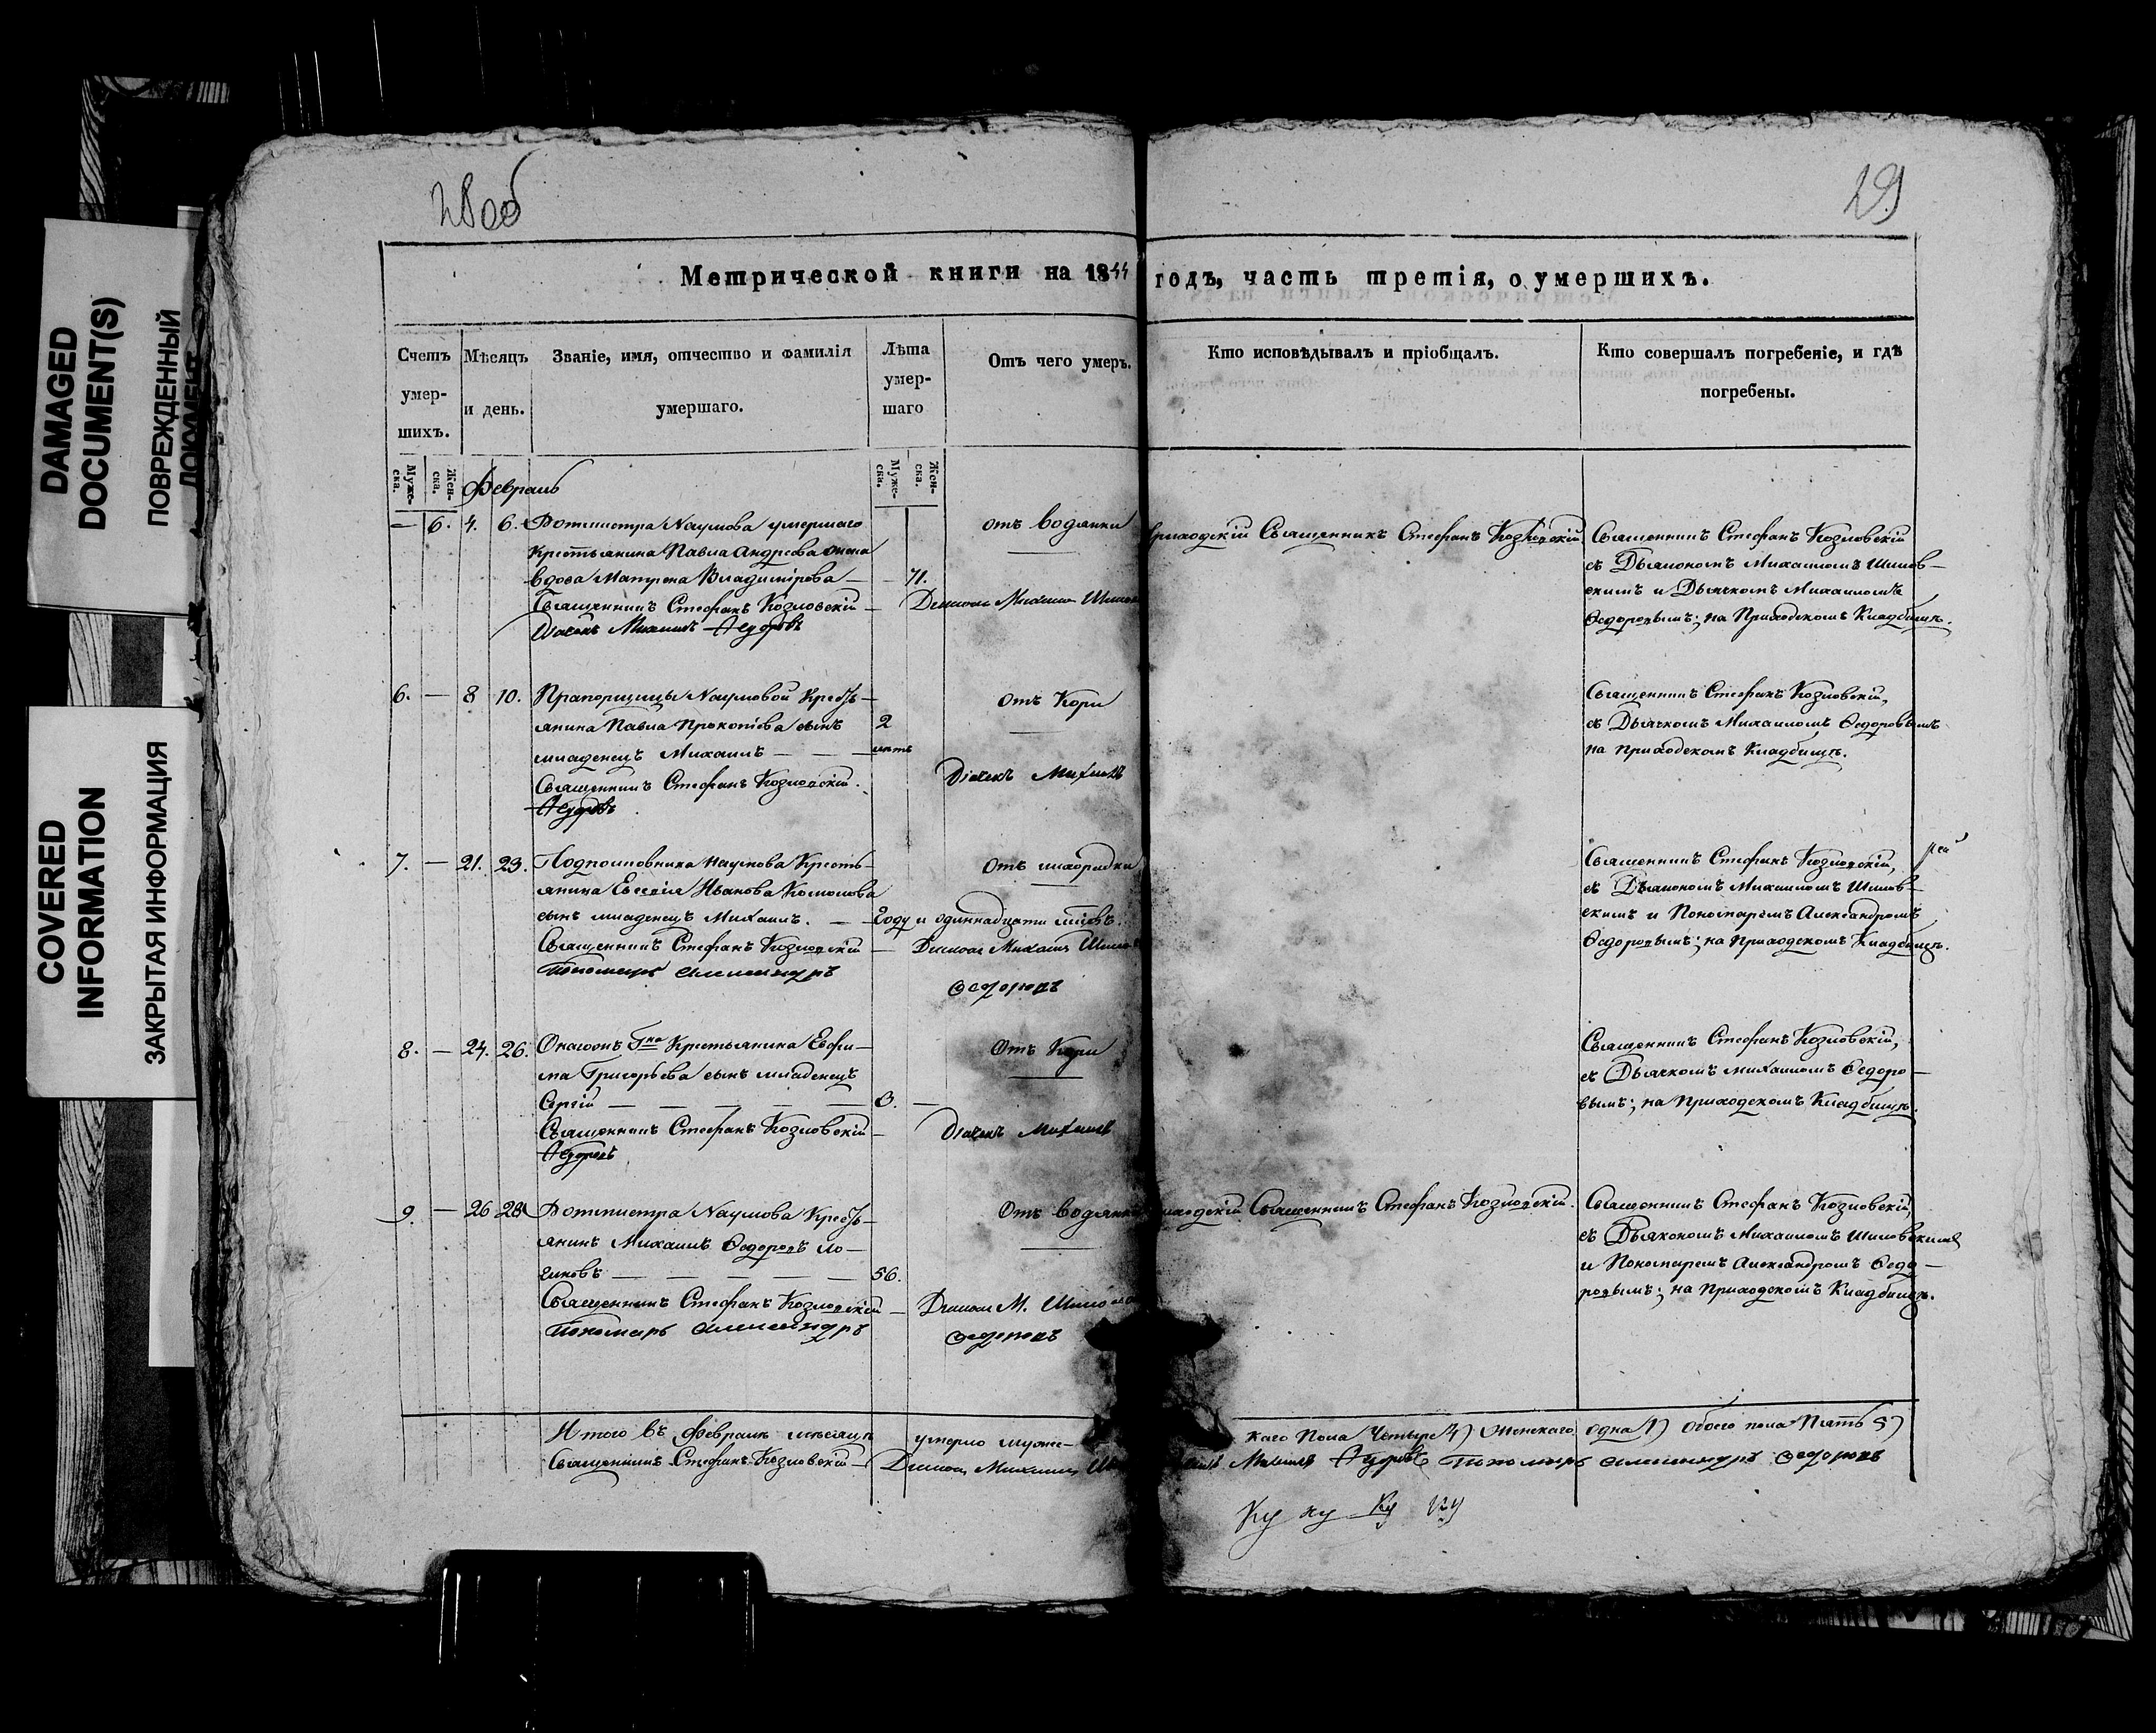 DAMAGED
DOCUMENT(S)
ПОВРЕЖДЕННЫЙ
ДОКУМЕНТ
COVERED
INFORMATION
ЗАКРЫТАЯ ИНФОРМАЦИЯ
28об
29
Метрической книги на 1844 годъ, часть третія, о умершихъ.
Счетъ умер-шихъ.
Мѣсяцъ и день.
Званіе, имя, отчество и фамилія умершаго.
Лѣта умер-шаго
Отъ чего умеръ.
Кто исповѣдывалъ и пріобщалъ.
Кто совершалъ погребеніе, и гдѣ погребены.
Муже-ска.
Жен-ска.
Муже-ска.
Жен-ска.
Февраль
— 6. 4. 6. Ротмистра Наумова умершаго
крестьянина Павла Андреева жена
вдова Матрена Владимірова — 71.
Священникъ Стефанъ Козловскій — Діаконъ Михаилъ
Дьячекъ Михаилъ Ѳедоровъ
отъ водянки
Приходскій Священникъ Стефанъ Козловскій
Священникъ Стефанъ Козловскій
съ Дьякономъ Михаиломъ Шилов-
скимъ и Дьячкомъ Михаиломъ
Ѳедоровымъ; на Приходскомъ Кладбищѣ.
6. — 8 10. Прапорщицы Наумовой Кресть-
янина Павла Прокопіева сынъ 2
младенецъ Михаилъ — — лѣтъ
Священникъ Стефанъ Козловскій.
Ѳедоровъ
Отъ Кори
Дьячекъ Михаилъ
Священникъ Стефанъ Козловскій,
съ Дьячкомъ Михаиломъ Ѳедоровымъ
на приходскомъ Кладбищѣ.
7. — 21. 23. Подполковника Наумова Кресть-
янина Евсевія Иванова
сынъ младенецъ Михаилъ. — Году и одиннадцати
Священникъ Стефанъ Козловскій — Діаконъ Михаилъ
Пономарь Александръ
Ѳедоровъ
Отъ
Священникъ Стефанъ Козловскій,
съ Дьякономъ Михаиломъ Шилов-
скимъ и Пономаремъ Александромъ
Ѳедоровымъ; на приходскомъ Кладбищѣ.
8. — 24. 26. Крестьянина Ефи-
ма Григорьева сынъ младенецъ
Сергій — — — — — 3. —
Священникъ Стефанъ Козловскій —
Ѳедоровъ
Отъ Кори
Дьячекъ Михаилъ
Священникъ Стефанъ Козловскій,
съ Дьячкомъ Михаиломъ Ѳедоро-
вымъ; на Приходскомъ Кладбищѣ.
9. — 26 28 Ротмистра Наумова Кресть-
янинъ Михаилъ Ѳедоровъ Ло-
гиновъ — — — — — 56.
Священникъ Стефанъ Козловскій — Діаконъ М.
Пономарь Александръ
Ѳедоровъ
Отъ водянки
Священникъ Стефанъ Козловскій.
Священникъ Стефанъ Козловскій,
съ Дьякономъ Михаиломъ Шиловскимъ
и Пономаремъ Александромъ Ѳедо-
ровымъ; на Приходскомъ Кладбищѣ.
Итого въ Февралѣ мѣсяцѣ умерло муже-каго Пола Четыре 4) Женскаго одна 1) Обоего пола Пять 5)
Священникъ Стефанъ Козловскій — Діаконъ Михаилъ Михаилъ Ѳедоровъ Пономарь Александръ Ѳедоровъ
Ку ку Ку